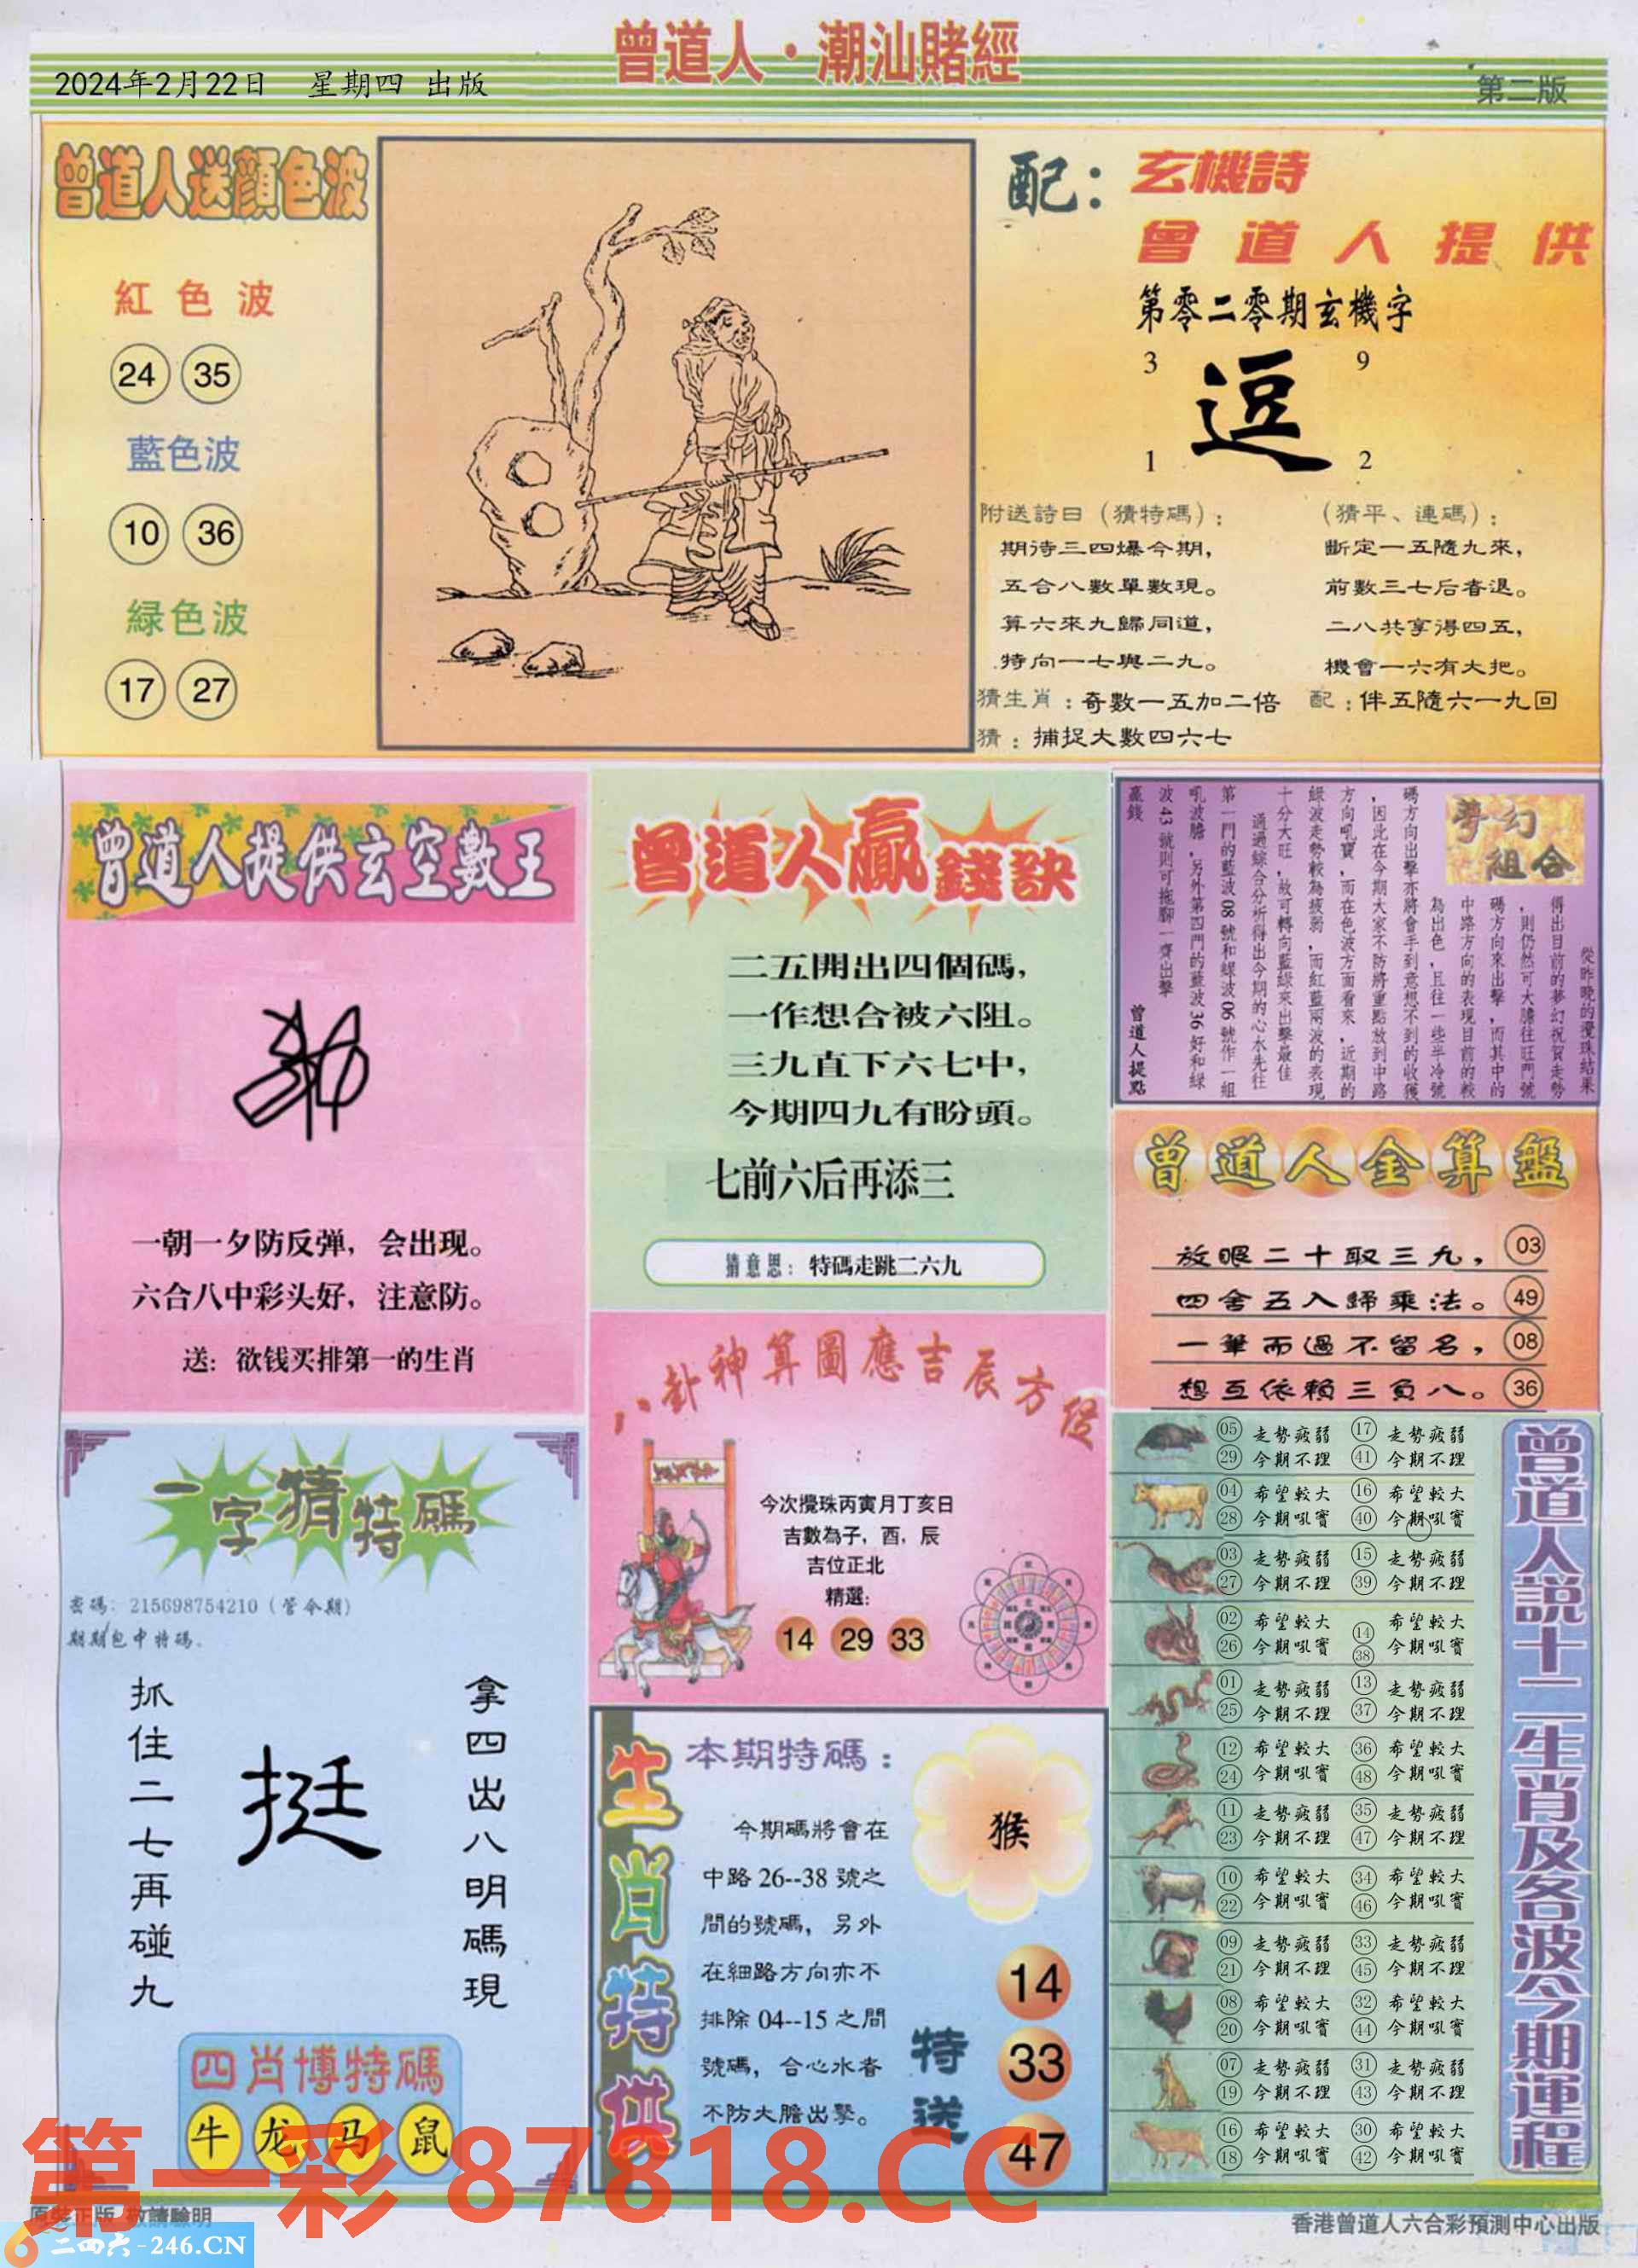 曾道人·潮汕賭經
2024年2月22日 星期四 出版
第二版
曾道人送顏色波
紅色波
24 35
藍色波
10 36
緑色波
17 27
配：玄機詩
曾道人提供
第零二零期玄機字
3 9
逗
1 2
附送詩曰（猜特碼）：
期待三四爆今期，
五合八數單數現。
算六來九歸同道，
特向一七與二九。
（猜平、連碼）：
斷定一五隨九來，
前數三七后春退。
二八共享得四五，
機會一六有大把。
猜生肖：奇數一五加二倍 配：伴五隨六一九回
猜：捕捉大數四六七
曾道人提供玄空數王
一朝一夕防反弹，会出现。
六合八中彩头好，注意防。
送：欲钱买排第一的生肖
曾道人贏錢訣
二五開出四個碼，
一作想合被六阻。
三九直下六七中，
今期四九有盼頭。
七前六后再添三
猜意思：特碼走跳二六九
夢幻組合
從昨晚的攪珠結果
得出目前的夢幻祝賀走勢
，則仍然可大膽往旺門號
碼方向來出擊，而其中的
中路方向的表現目前的較
為出色，且往一些半冷號
碼方向出擊亦將會手到意想不到的收獲
，因此在今期大家不防將重點放到中路
方向吼寶，而在色波方面看來，近期的
綠波走勢較為疲弱，而紅藍兩波的表現
十分大旺，故可轉向藍綠來出擊最佳
通過綜合分析得出今期的心水先往
第一門的藍波08號和緑波06號作一組
吼波膽，另外第四門的藍波36好和緑
波43號則可拖腳一齊出擊
贏錢
曾道人提點
曾道人金算盤
放眼二十取三九， 03
四舍五入歸乘法。 49
一筆而過不留名， 08
想互依賴三負八。 36
八卦神算圖應吉辰方位
今次攪珠丙寅月丁亥日
吉數為子，酉，辰
吉位正北
精選：
14 29 33
一字猜特碼
密碼：215698754210（管今期）
期期包中特碼.
抓住二七再碰九
挺
拿四出八明碼現
四肖博特碼
牛 龙 马 鼠
生肖特供
本期特碼：
猴
今期碼將會在
中路26--38號之
間的號碼，另外
在細路方向亦不
排除04--15之間
號碼，合心水者
不防大膽出擊。
特送
14
33
47
曾道人說十二生肖及各波今期運程
05 走勢疲弱 17 走勢疲弱
29 今期不理 41 今期不理
04 希望較大 16 希望較大
28 今期吼寶 40 今期吼寶
03 走勢疲弱 15 走勢疲弱
27 今期不理 39 今期不理
02 希望較大 14 希望較大
26 今期吼寶 38 今期吼寶
01 走勢疲弱 13 走勢疲弱
25 今期不理 37 今期不理
12 希望較大 36 希望較大
24 今期吼寶 48 今期吼寶
11 走勢疲弱 35 走勢疲弱
23 今期不理 47 今期不理
10 希望較大 34 希望較大
22 今期吼寶 46 今期吼寶
09 走勢疲弱 33 走勢疲弱
21 今期不理 45 今期不理
08 希望較大 32 希望較大
20 今期吼寶 44 今期吼寶
07 走勢疲弱 31 走勢疲弱
19 今期不理 43 今期不理
16 希望較大 30 希望較大
18 今期吼寶 42 今期吼寶
第一彩 87818.CC
原裝正版 敬請驗明
二四六-246.CN
香港曾道人六合彩預測中心出版